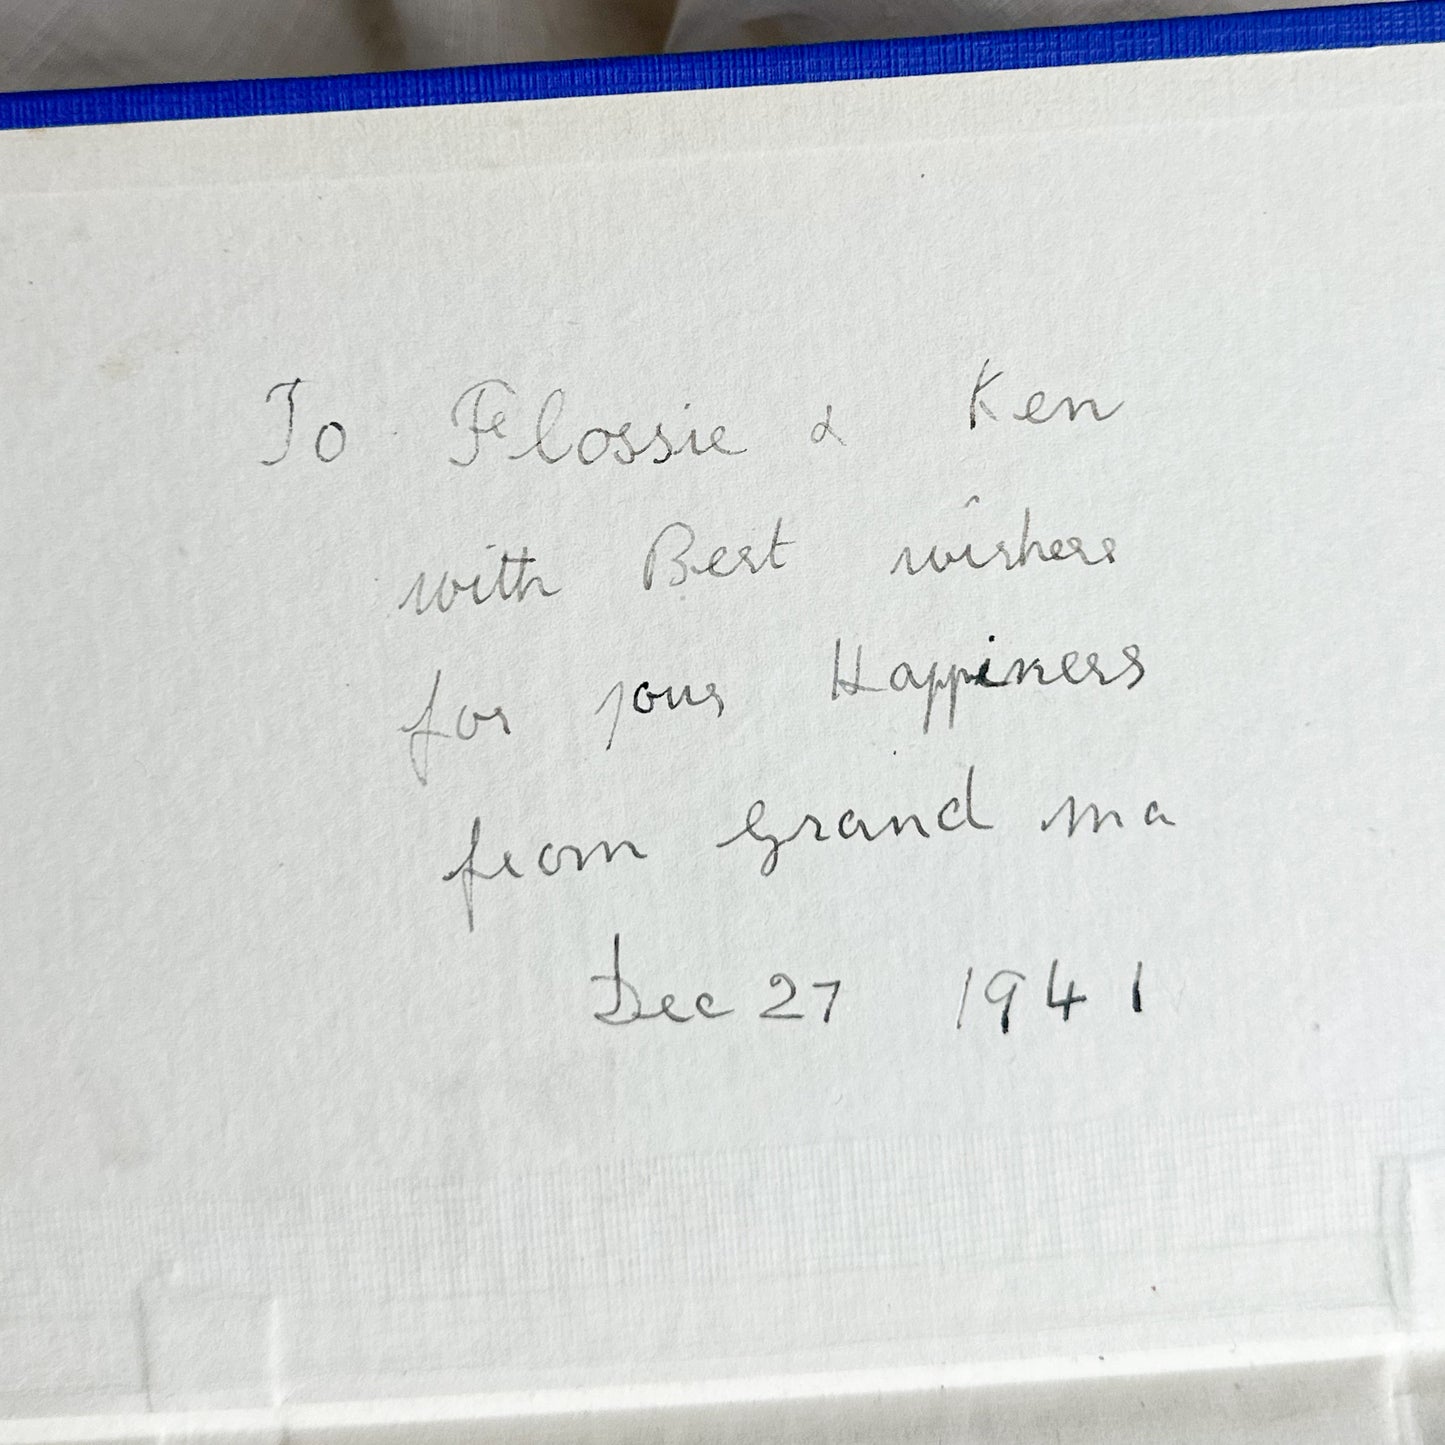 To Flossie & Ken
with Best wishes
for your Happiness
from Grand ma
Dec 27 1941